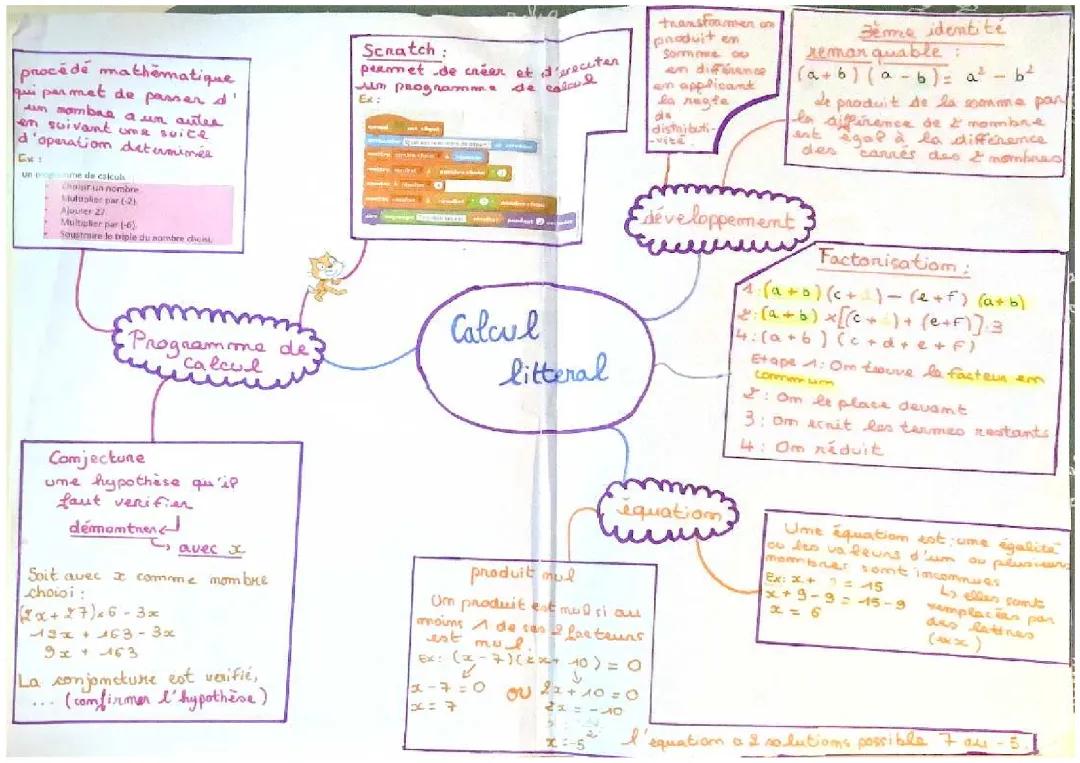 Calcul
litteral
Programme de
Calcul
procédé mathématique
qui permet de passer d'
un nombre a un autre
en suivant une suite
d'operation determinée
Ex :
un programme de calculs
Choisir un nombre
Multiplier par (-2).
Ajouter 27
Multiplier par (-6).
Soustraire le triple du nombre choisi.
Scratch :
permet de créer et d'executer
un programme de calcul
Ex :
Conjecture
une hypothèse qu'il
faut verifier
démontrer
avec x
Soit avec x comme nombre
choisi :
(2x+27)×6 - 3x
12x + 163 - 3x
9x + 163
La conjoncture est verifié,
... (confirmer l'hypothèse)
développement
transformer un
produit en
somme ou
en différence
en appliquant
la regle
de
distributi-
-vité
3ème identité
remarquable :
(a+b) (a-b) = a² - b²
Le produit de la somme par
la différence de 2 nombre
est égal à la différence
des carrés des 2 nombres
Factorisation :
1:(a+b)(c+ ) - (e+f) (a+b)
2:(a+b) ×[(c+ )+ (e+f)].3
4:(a+b) (c+d+e+f)
Etape 1: On trouve le facteur en
commun
2 : On le place devant
3 : on ecrit les termes restants
4 : On réduit
équation
Une équation est une égalité
ou les valeurs d'un ou plusieurs
nombres sont inconnues
Ex: x + 9 = 15
x + 9 - 9 = 15 - 9
x = 6
↳ elles sont
remplacées par
des lettres
(ex x)
produit nul
Un produit est nul si au
moins 1 de ses 2 facteurs
est nul.
Ex: (x-7)(2x+10) = 0
x - 7 = 0 ou 2x + 10 = 0
x = 7 2x = -10
x = -5
l'equation a 2 solutions possible 7 ou -5.